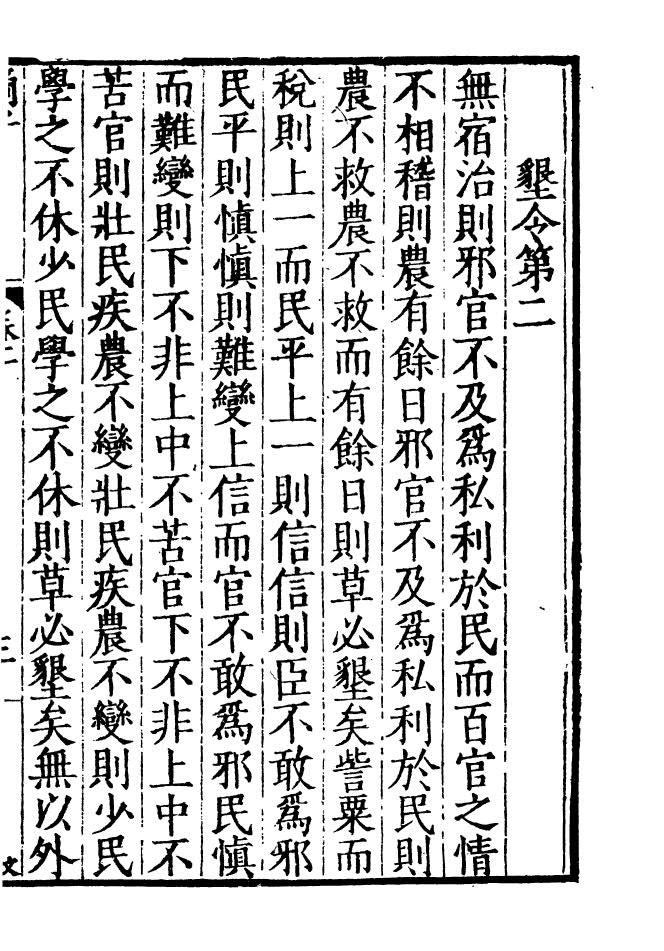 墾令第二
無宿治則邪官不及為私利於民而百官之情
不相稽則農有餘日邪官不及為私利於民則
農不救農不救而有餘日則草必墾矣訾粟而
稅則上一而民平上一則信信則臣不敢為邪
民平則慎慎則難變上信而官不敢為邪民慎
而難變則下不非上中不苦官下不非上中不
苦官則壯民疾農不變壯民疾農不變則少民
學之不休少民學之不休則草必墾矣無以外
三
文